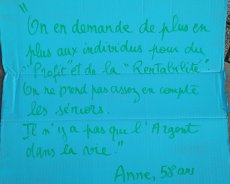 "
On en demande de plus en
plus aux individus pour du
"Profit" et de la "Rentabilité"
On ne prend pas assez en compte
les séniors.
Il n'y a pas que l'Argent
dans la vie"
Anne, 58 ans